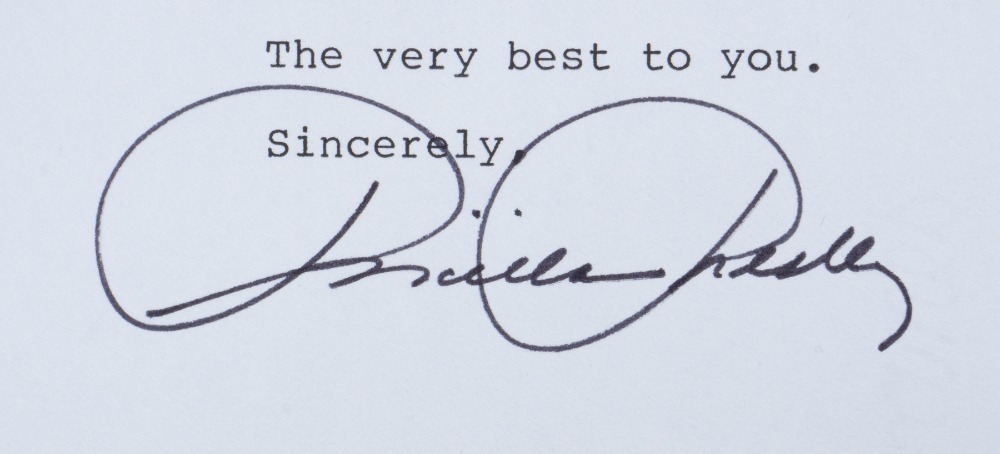 The very best to you.
Sincerely,
Priscilla Presley